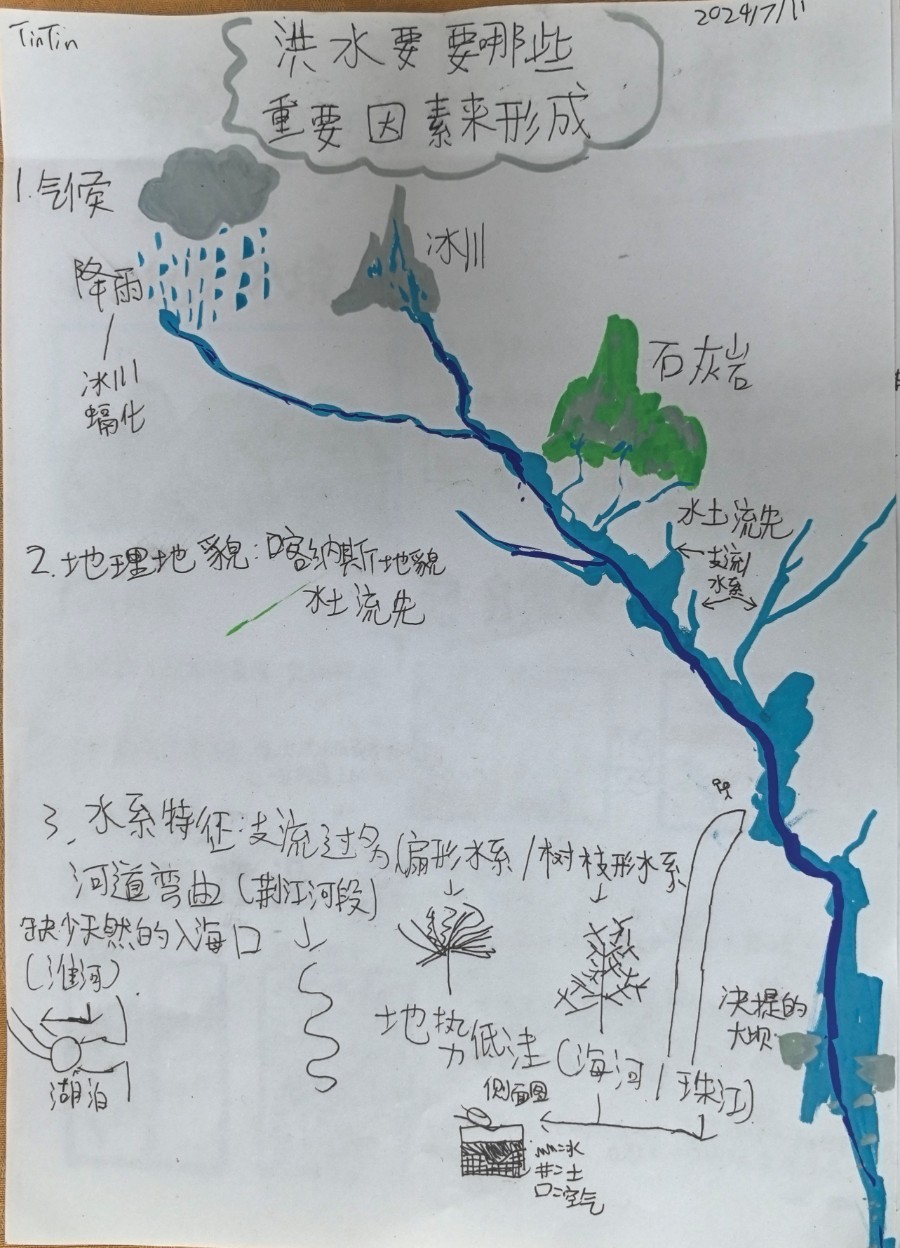 TinTin
2024/7/11
洪水要要哪些
重要因素来形成
1.气候
降雨
冰川
蝠化
冰川
石灰岩
水土流失
支流
水系
2.地理地貌:喀纳斯地貌
水土流失
3.水系特征:支流过多(扇形水系/树枝形水系
河道弯曲(荆江河段)
缺少天然的入海口
(淮河)
湖泊
地势低洼(海河/珠江)
决提的
大坝
侧面图
=水
井=土
口=空气